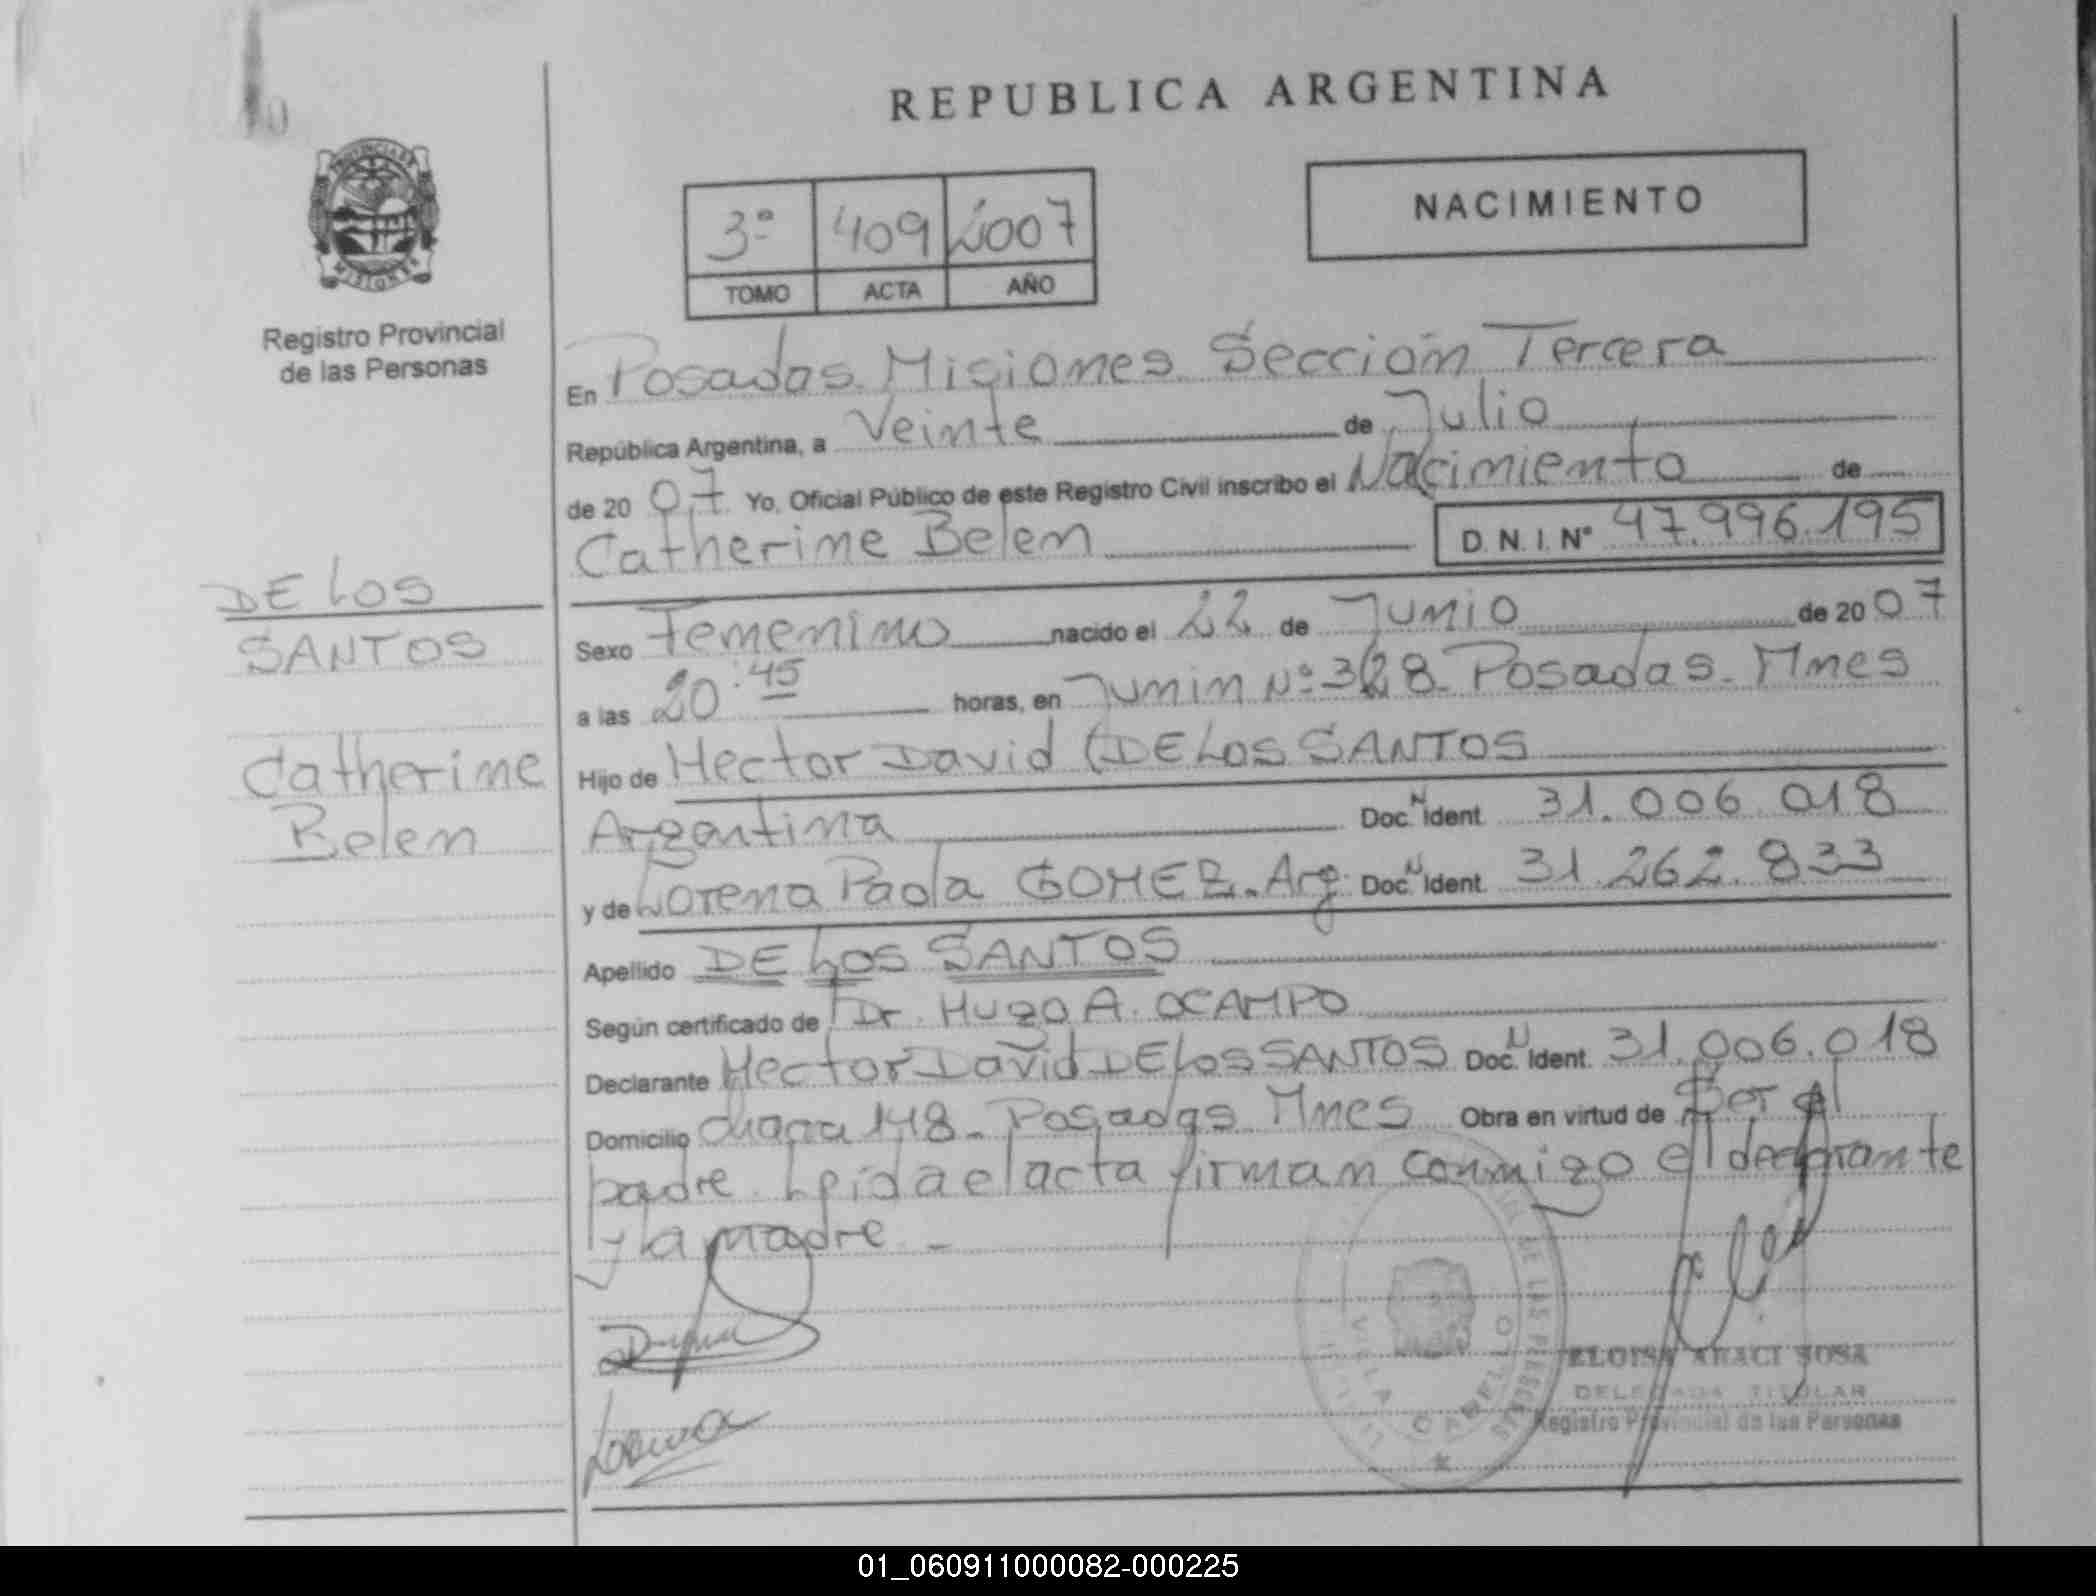 REPUBLICA ARGENTINA
PROVINCIA DE
MISIONES
Registro Provincial
de las Personas
3º 409 2007
TOMO ACTA AÑO
NACIMIENTO
En Posadas Misiones Sección Tercera
República Argentina, a Veinte de Julio
de 2007 Yo, Oficial Público de este Registro Civil inscribo el Nacimiento de
Catherine Belen D.N.I. Nº 47.996.195
DE LOS
SANTOS
Catherine
Belen
Sexo Femenino nacido el 22 de Junio de 2007
a las 20:45 horas, en Junin Nº 328 Posadas. Mnes
Hijo de Hector David DE LOS SANTOS
Argentina Doc. N Ident. 31.006.018
y de Lorena Paola GOMEZ. Arg. Doc. N Ident. 31.262.833
Apellido DE LOS SANTOS
Según certificado de Dr. Hugo A. OCAMPO
Declarante Hector David DE LOS SANTOS Doc. N Ident. 31.006.018
Domicilio chacra 148 - Posadas Mnes Obra en virtud de Ser el
padre. Leida el acta firman conmigo el declarante
y la madre. -
Lorena
DE LAS PERSONAS
VILLA CABELLO
ELOISA ARACI SOSA
DELEGADA TITULAR
Registro Provincial de las Personas
01_060911000082-000225